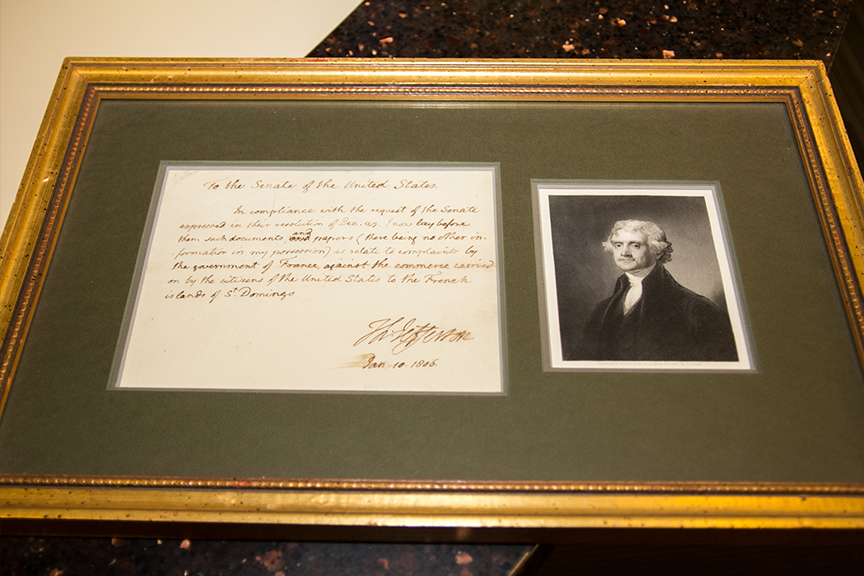 To the Senate of the United States.
In compliance with the request of the Senate
expressed in their resolution of Dec. 27. I now lay before
them such documents and papers (there being no other in-
formation in my possession) as relate to complaints by
the government of France, against the commerce carried
on by the citizens of the United States to the French
islands of St. Domingo.
Th: Jefferson
Jan. 10. 1806.